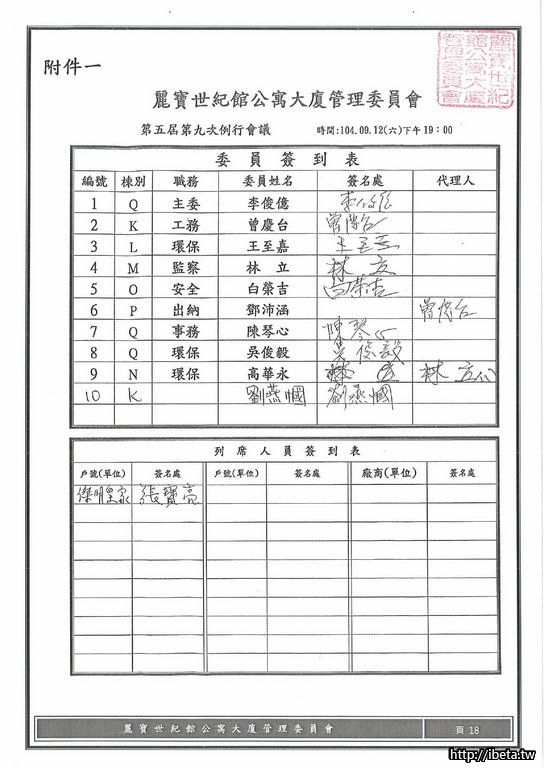 附件一
麗寶世紀館公寓大廈管理委員會
麗寶世紀館公寓大廈管理委員會
第五屆第九次例行會議 時間:104.09.12(六)下午19:00
委員簽到表
編號 棟別 職務 委員姓名 簽名處 代理人
1 Q 主委 李俊億
2 K 工務 曾慶台 曾慶台
3 L 環保 王至嘉
4 M 監察 林 立 林 立
5 O 安全 白榮吉 白榮吉
6 P 出納 鄧沛涵 曾慶台
7 Q 事務 陳琴心 陳琴心
8 Q 環保 吳俊毅 吳俊毅
9 N 環保 高華永 林 立代
10 K 劉燕幗 劉燕幗
列席人員簽到表
戶號(單位) 簽名處 戶號(單位) 簽名處 廠商(單位) 簽名處
傑明皇家 張寶亮
麗寶世紀館公寓大廈管理委員會 頁 18
http://ibeta.tw